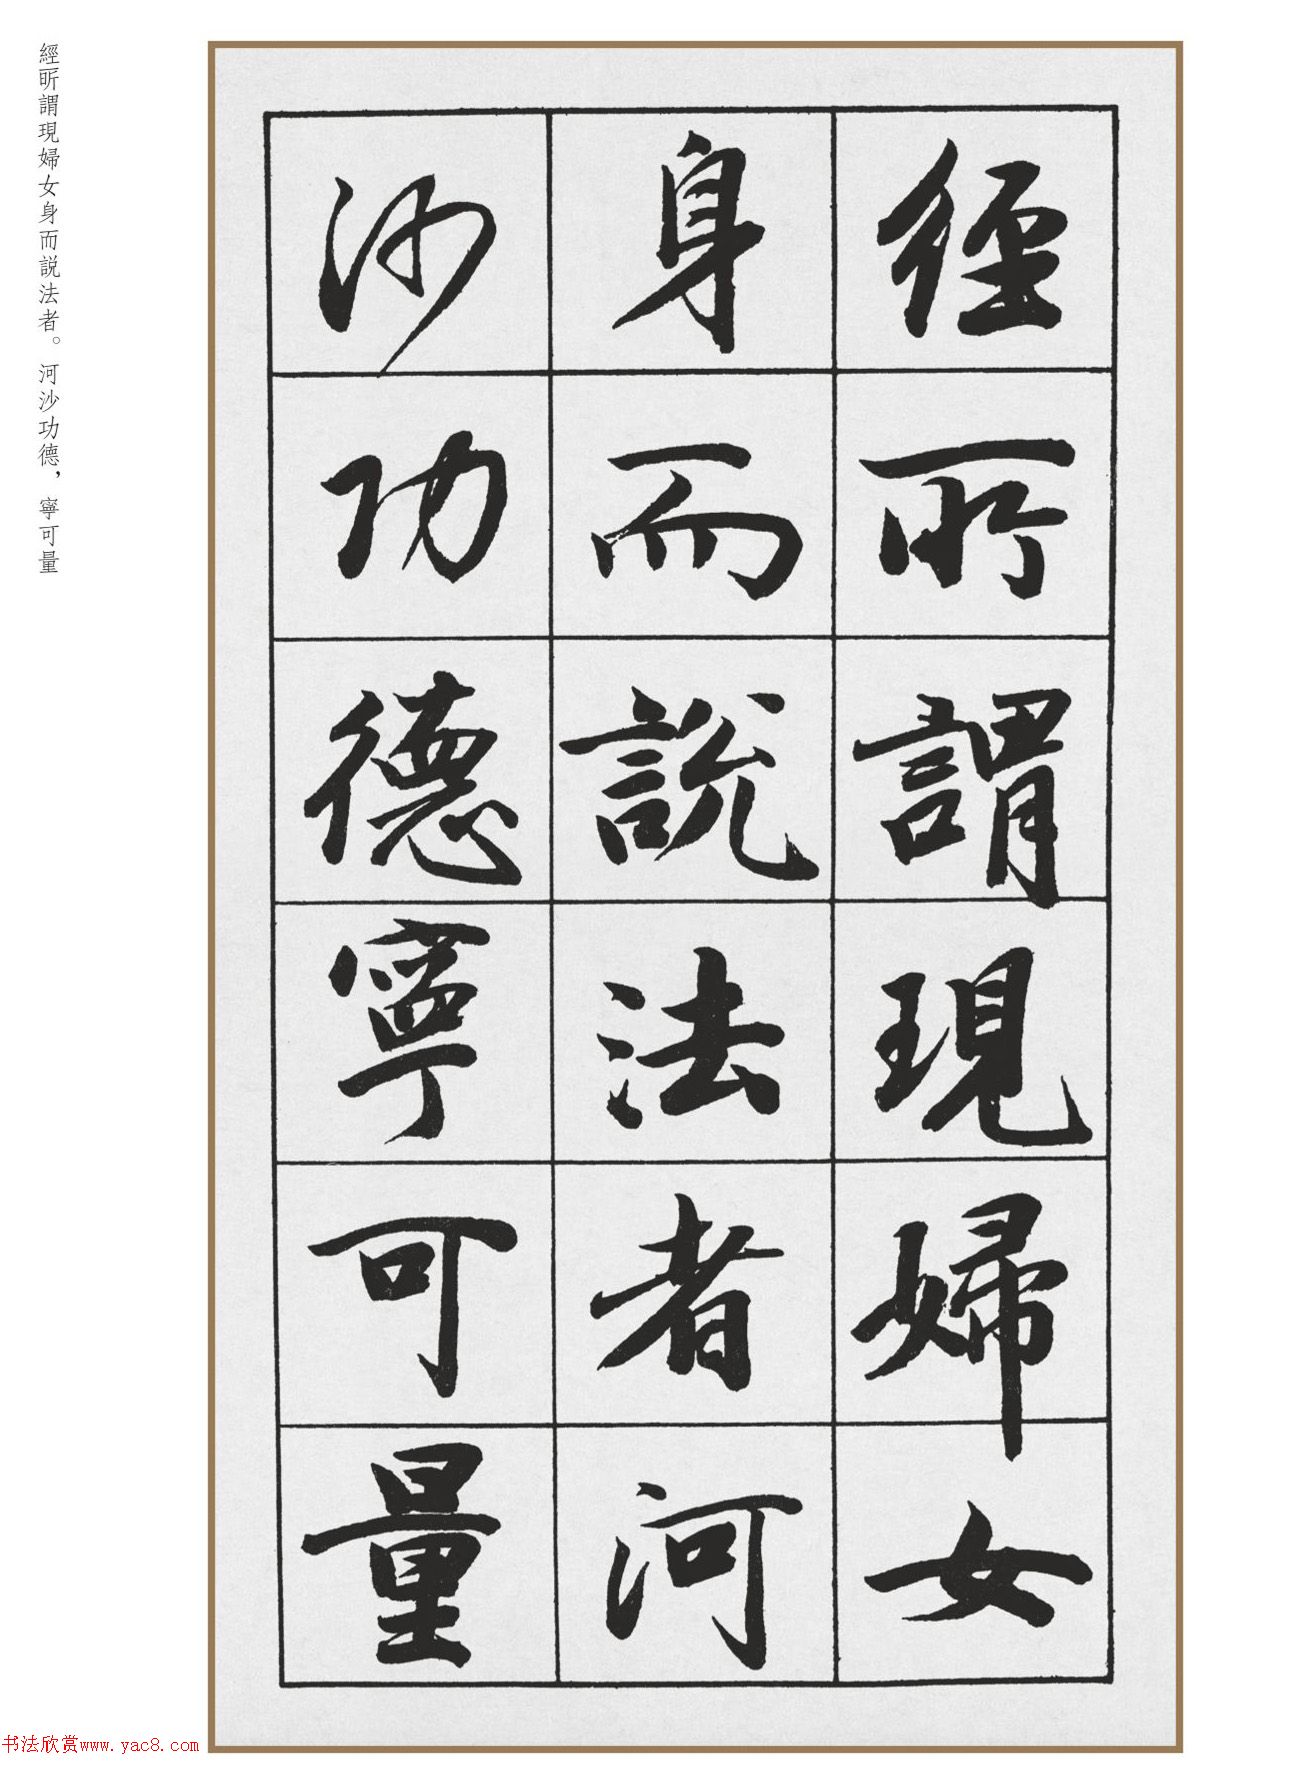 經昕謂現婦女身而説法者。河沙功德，寧可量
徑所謂現婦女
身而說法者河
沙功德寧可量
书法欣赏www.yac8.com